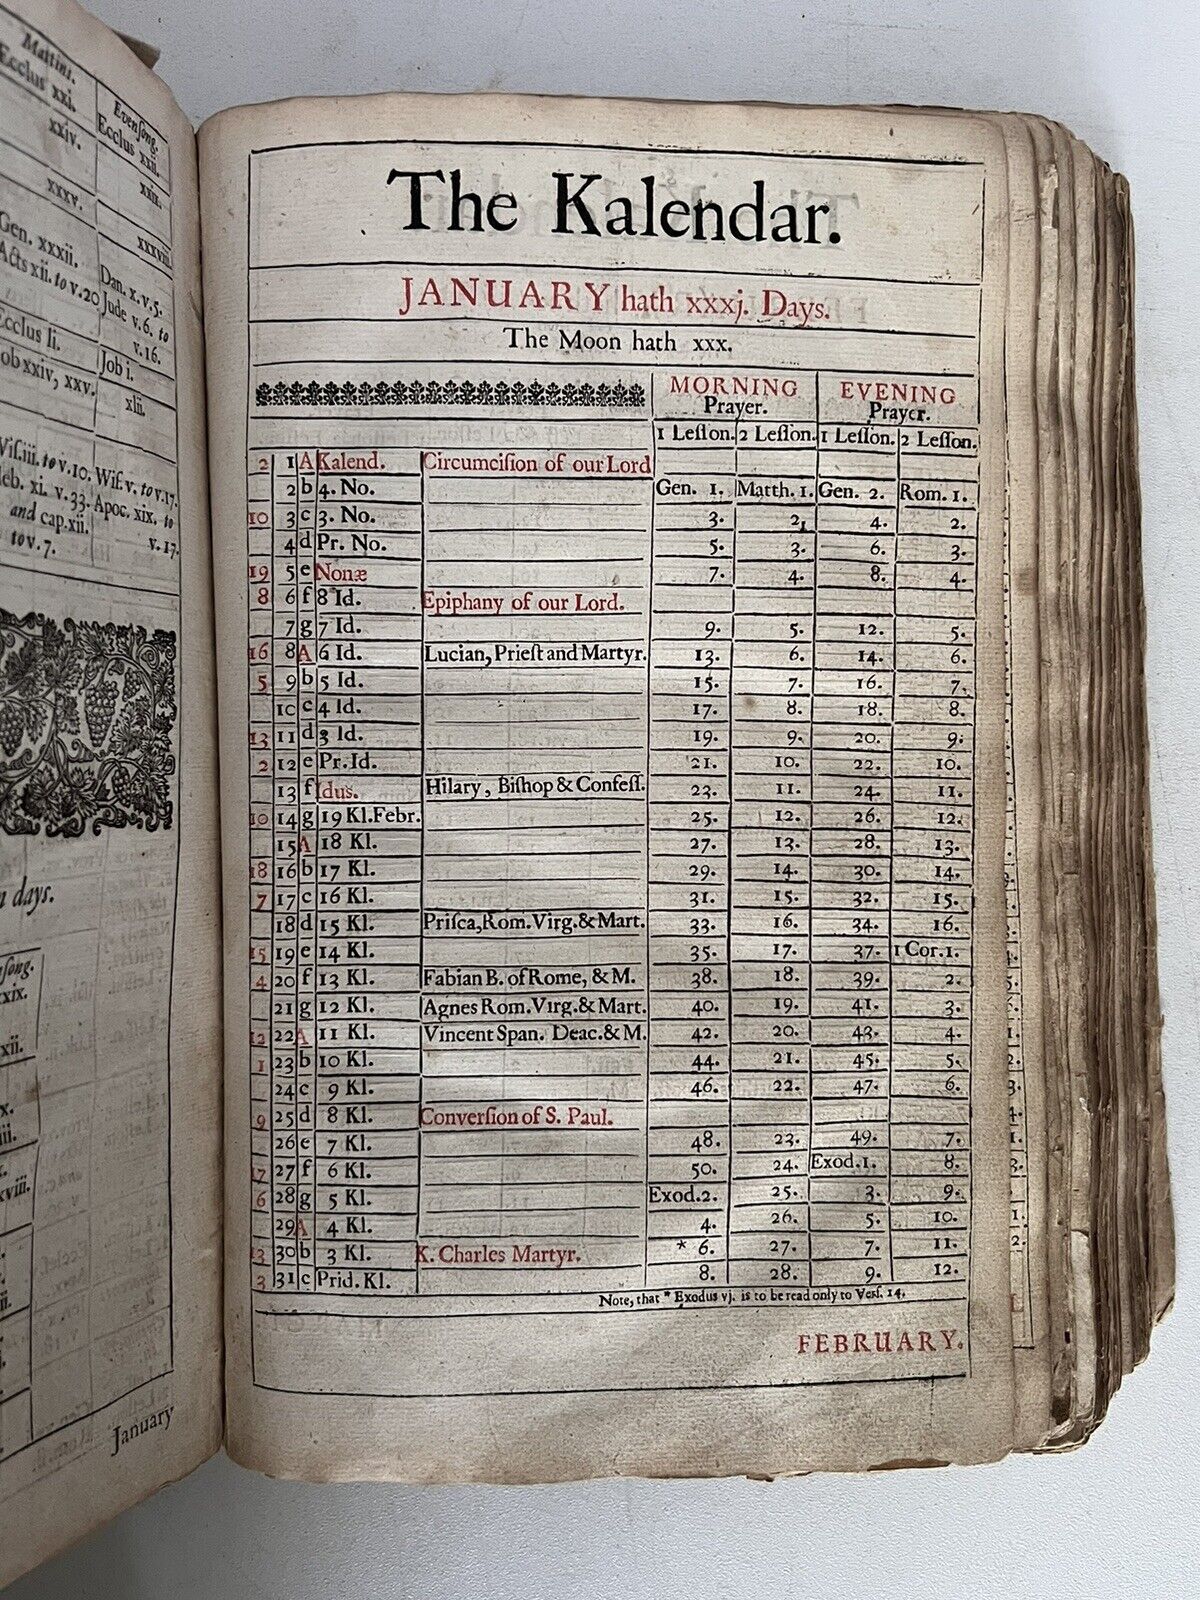 Mattins.
Evenſong.
Ecclus xxi.
Ecclus xxii.
xxiv.
xxix.
xxxv.
xxxviii.
Gen. xxxii.
Dan. x. v. 5.
Acts xii. to v. 20
Jude v. 6. to
v. 16.
Ecclus li.
Job i.
Job xxiv, xxv.
xlii.
Wiſ. iii. to v. 10.
Wiſ. v. to v. 17.
Heb. xi. v. 33.
Apoc. xix. to
and cap. xii.
v. 17.
to v. 7.
days.
January
The Kalendar.
JANUARY hath xxxj. Days.
The Moon hath xxx.
MORNING EVENING
Prayer. Prayer.
1 Leſſon. 2 Leſſon. 1 Leſſon. 2 Leſſon.
2 1 A Kalend. Circumciſion of our Lord
2 b 4. No. Gen. 1. Matth. 1. Gen. 2. Rom. 1.
10 3 c 3. No. 3. 2. 4. 2.
4 d Pr. No. 5. 3. 6. 3.
19 5 e Nonæ 7. 4. 8. 4.
8 6 f 8 Id. Epiphany of our Lord.
7 g 7 Id. 9. 5. 12. 5.
16 8 A 6 Id. Lucian, Prieſt and Martyr. 13. 6. 14. 6.
5 9 b 5 Id. 15. 7. 16. 7.
10 c 4 Id. 17. 8. 18. 8.
13 11 d 3 Id. 19. 9. 20. 9.
2 12 e Pr. Id. 21. 10. 22. 10.
13 f Idus. Hilary, Biſhop & Confeſſ. 23. 11. 24. 11.
10 14 g 19 Kl. Febr. 25. 12. 26. 12.
15 A 18 Kl. 27. 13. 28. 13.
18 16 b 17 Kl. 29. 14. 30. 14.
7 17 c 16 Kl. 31. 15. 32. 15.
18 d 15 Kl. Priſca, Rom. Virg. & Mart. 33. 16. 34. 16.
15 19 e 14 Kl. 35. 17. 37. 1 Cor. 1.
4 20 f 13 Kl. Fabian B. of Rome, & M. 38. 18. 39. 2.
21 g 12 Kl. Agnes Rom. Virg. & Mart. 40. 19. 41. 3.
12 22 A 11 Kl. Vincent Span. Deac. & M. 42. 20. 43. 4.
1 23 b 10 Kl. 44. 21. 45. 5.
24 c 9 Kl. 46. 22. 47. 6.
9 25 d 8 Kl. Converſion of S. Paul.
26 e 7 Kl. 48. 23. 49. 7.
17 27 f 6 Kl. 50. 24. Exod. 1. 8.
6 28 g 5 Kl. Exod. 2. 25. 3. 9.
29 A 4 Kl. 4. 26. 5. 10.
13 30 b 3 Kl. K. Charles Martyr. * 6. 27. 7. 11.
3 31 c Prid. Kl. 8. 28. 9. 12.
Note, that * Exodus vj. is to be read only to Verſ. 14.
FEBRUARY.